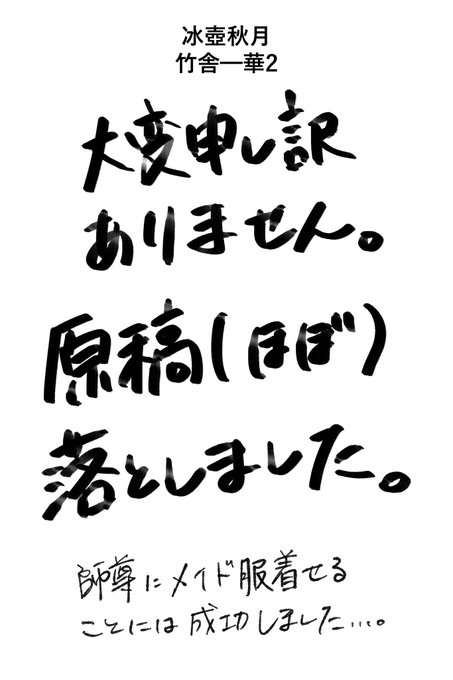 冰壺秋月
竹舎一華2
大変申し訳
ありません。
原稿(ほぼ)
落としました。
師尊にメイド服着せる
ことには成功しました…。